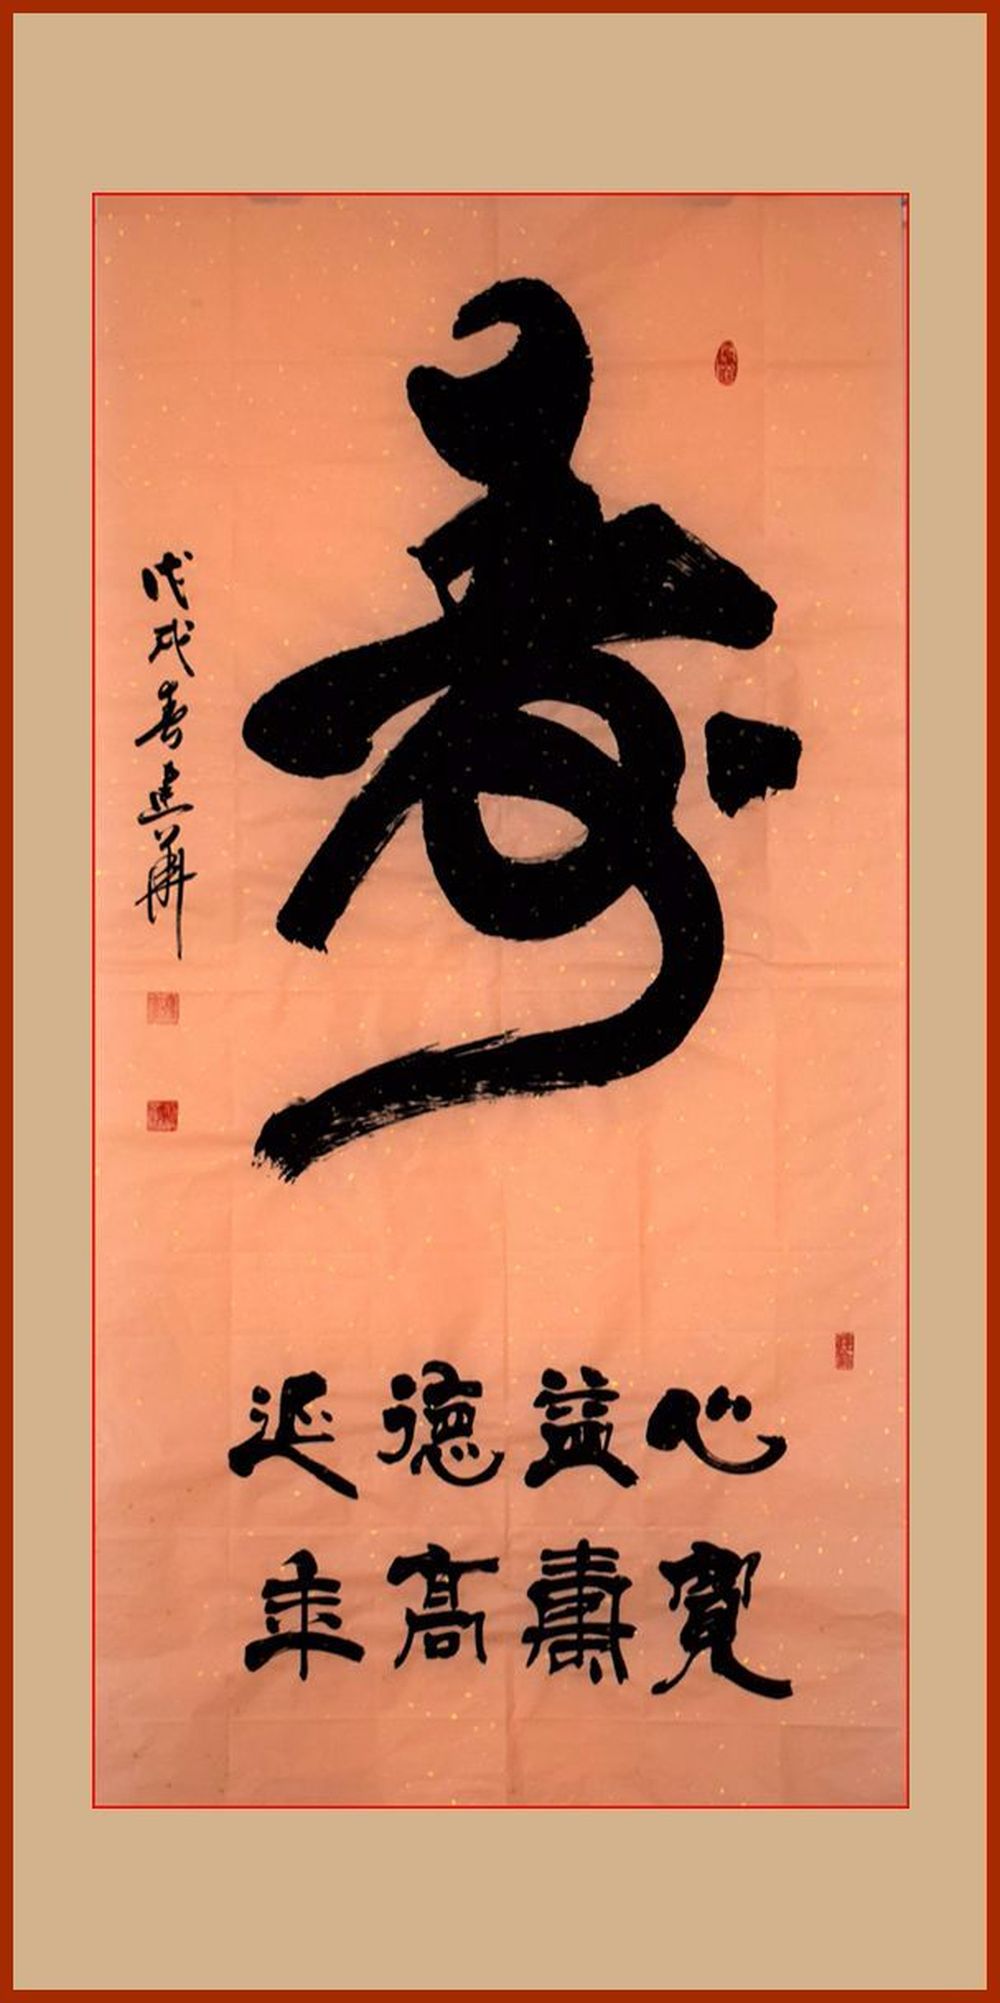 寿
心寬
益壽
德高
延年
戊戌春建華